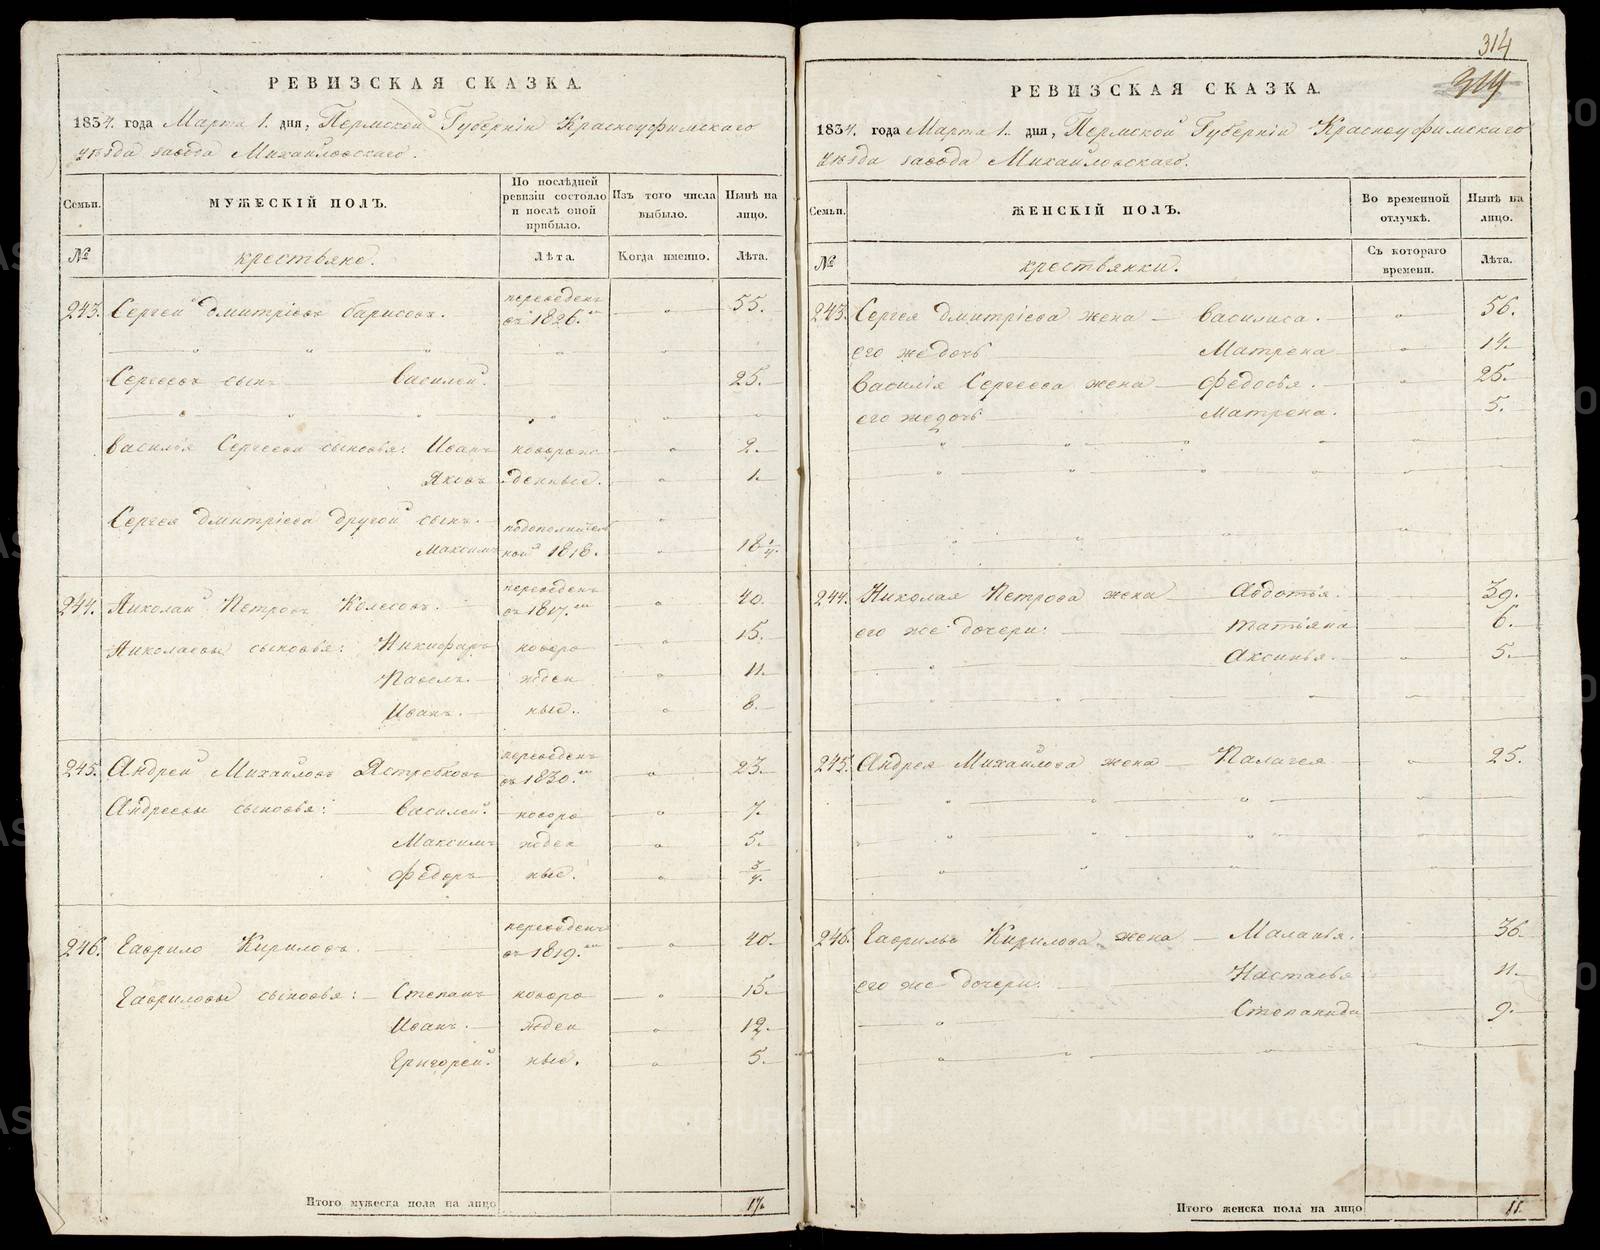 314
314
РЕВИЗСКАЯ СКАЗКА.
1834. года Марта 1. дня, Пермской Губернiи Красноуфимскаго
уѣзда завода Михайловскаго.
Семьи.
МУЖЕСКIЙ ПОЛЪ.
По послѣдней ревизiи состояло и послѣ оной прибыло.
Изъ того числа выбыло.
Нынѣ на лицо.
№
крестьяне.
Лѣта.
Когда именно.
Лѣта.
243. Сергей Дмитрiевъ Барисовъ. переведенъ въ 1826.мъ 55.
Сергеевъ сынъ Василей. 25.
Василья Сергеева сыновья: Иванъ новорож 2.
Яковъ денные. 1.
Сергея Дмитрiева другой сынъ.
Максимъ 1818. 18 1/4.
244. Николай Петровъ Колесовъ. переведенъ въ 1817.мъ 40.
Николаевы сыновья: Никифаръ новоро 15.
Павелъ. жден 11.
Иванъ. ные. 8.
245. Андрей Михайловъ Ястребковъ переведенъ въ 1830.мъ 23.
Андреевы сыновья: Василей. новоро 7.
Максимъ жден 5.
Федоръ ные. 3/4.
246. Гаврило Кириловъ. переведенъ въ 1819.мъ 40.
Гавриловы сыновья: Степанъ новоро 15.
Иванъ. жден 12.
Григорей. ные. 5.
Итого мужеска пола на лицо 17.
РЕВИЗСКАЯ СКАЗКА.
1834. года Марта 1. дня, Пермской Губернiи Красноуфимскаго
уѣзда завода Михайловскаго.
Семьи.
ЖЕНСКIЙ ПОЛЪ.
Во временной отлучкѣ.
Нынѣ на лицо.
№
крестьянки.
Съ котораго времени.
Лѣта.
243. Сергея Дмитрiева жена Василиса. 56.
его же дочь Матрена 14.
Василiя Сергеева жена Федосья. 25.
его же дочь Матрена. 5.
244. Николая Петрова жена Авдотья. 39.
его же дочери: Татьяна 6.
Аксинья. 5.
245. Андрея Михайлова жена Палагея 25.
246. Гаврилы Кирилова жена Маланья. 36.
его же дочери: Настасья 11.
Степанида 9.
Итого женска пола на лицо 11.